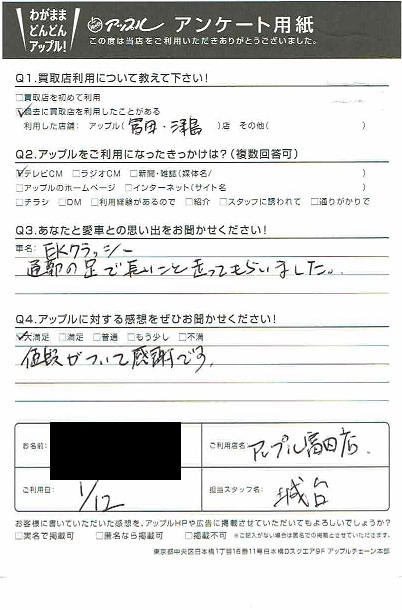 わがまま
どんどん
アップル!
アップル アンケート用紙
この度は当店をご利用いただきありがとうございました。
Q1.買取店利用について教えて下さい!
□買取店を初めて利用
☑過去に買取店を利用したことがある
利用した店舗: アップル(富田・津島)店 その他( )
Q2.アップルをご利用になったきっかけは?(複数回答可)
☑テレビCM □ラジオCM □新聞・雑誌(媒体名/ )
□アップルのホームページ □インターネット(サイト名 )
□チラシ □DM □利用経験があるので □紹介 □スタッフに誘われて □通りがかりで
Q3.あなたと愛車との思い出をお聞かせください!
車名: EKクラッシー
通勤の足で長いこと走ってもらいました。
Q4.アップルに対する感想をぜひお聞かせください!
☑大満足 □満足 □普通 □もう少し □不満
値段がついて感謝です。
お名前:
ご利用店名: アップル富田店.
ご利用日: 1/12
担当スタッフ名: 城台
お客様に書いていただいた感想を、アップルHPや広告に掲載させていただいてもよろしいでしょうか?
□実名で掲載可 □匿名なら掲載可 □掲載不可 ※ご記入がない場合は匿名での掲載とさせていただきます。
東京都中央区日本橋1丁目16番11号日本橋Dスクエア9F アップルチェーン本部